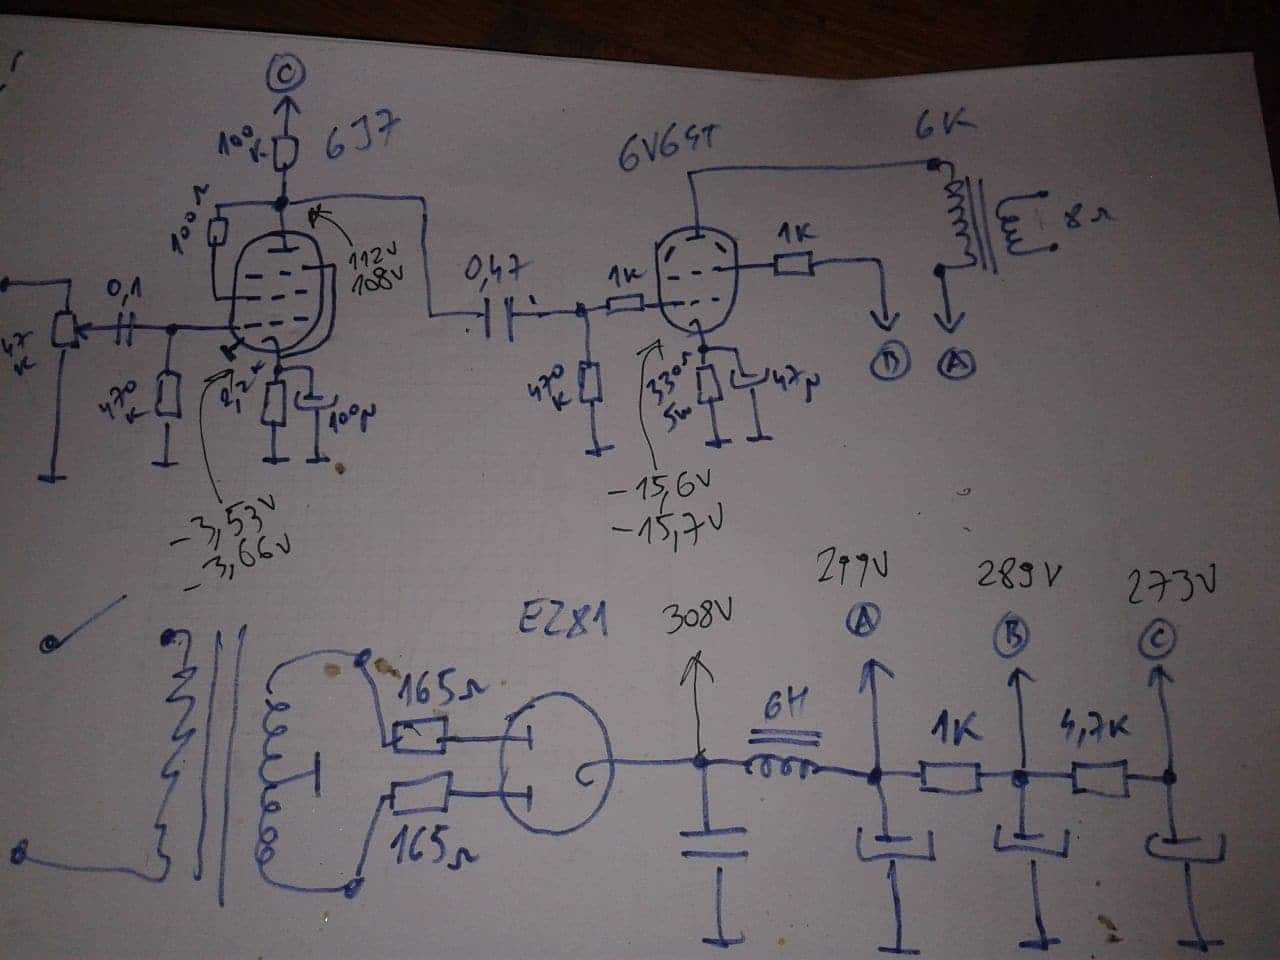 C
100K
6J7
100Ω
112V
108V
47K
0,1
470K
2,2K
100µ
-3,53V
-3,66V
0,47
6V6GT
1K
1K
470K
330Ω
5W
47µ
-15,6V
-15,7V
6K
8Ω
B
A
EZ81
165Ω
165Ω
308V
6H
299V
A
1K
289V
B
4,7K
273V
C